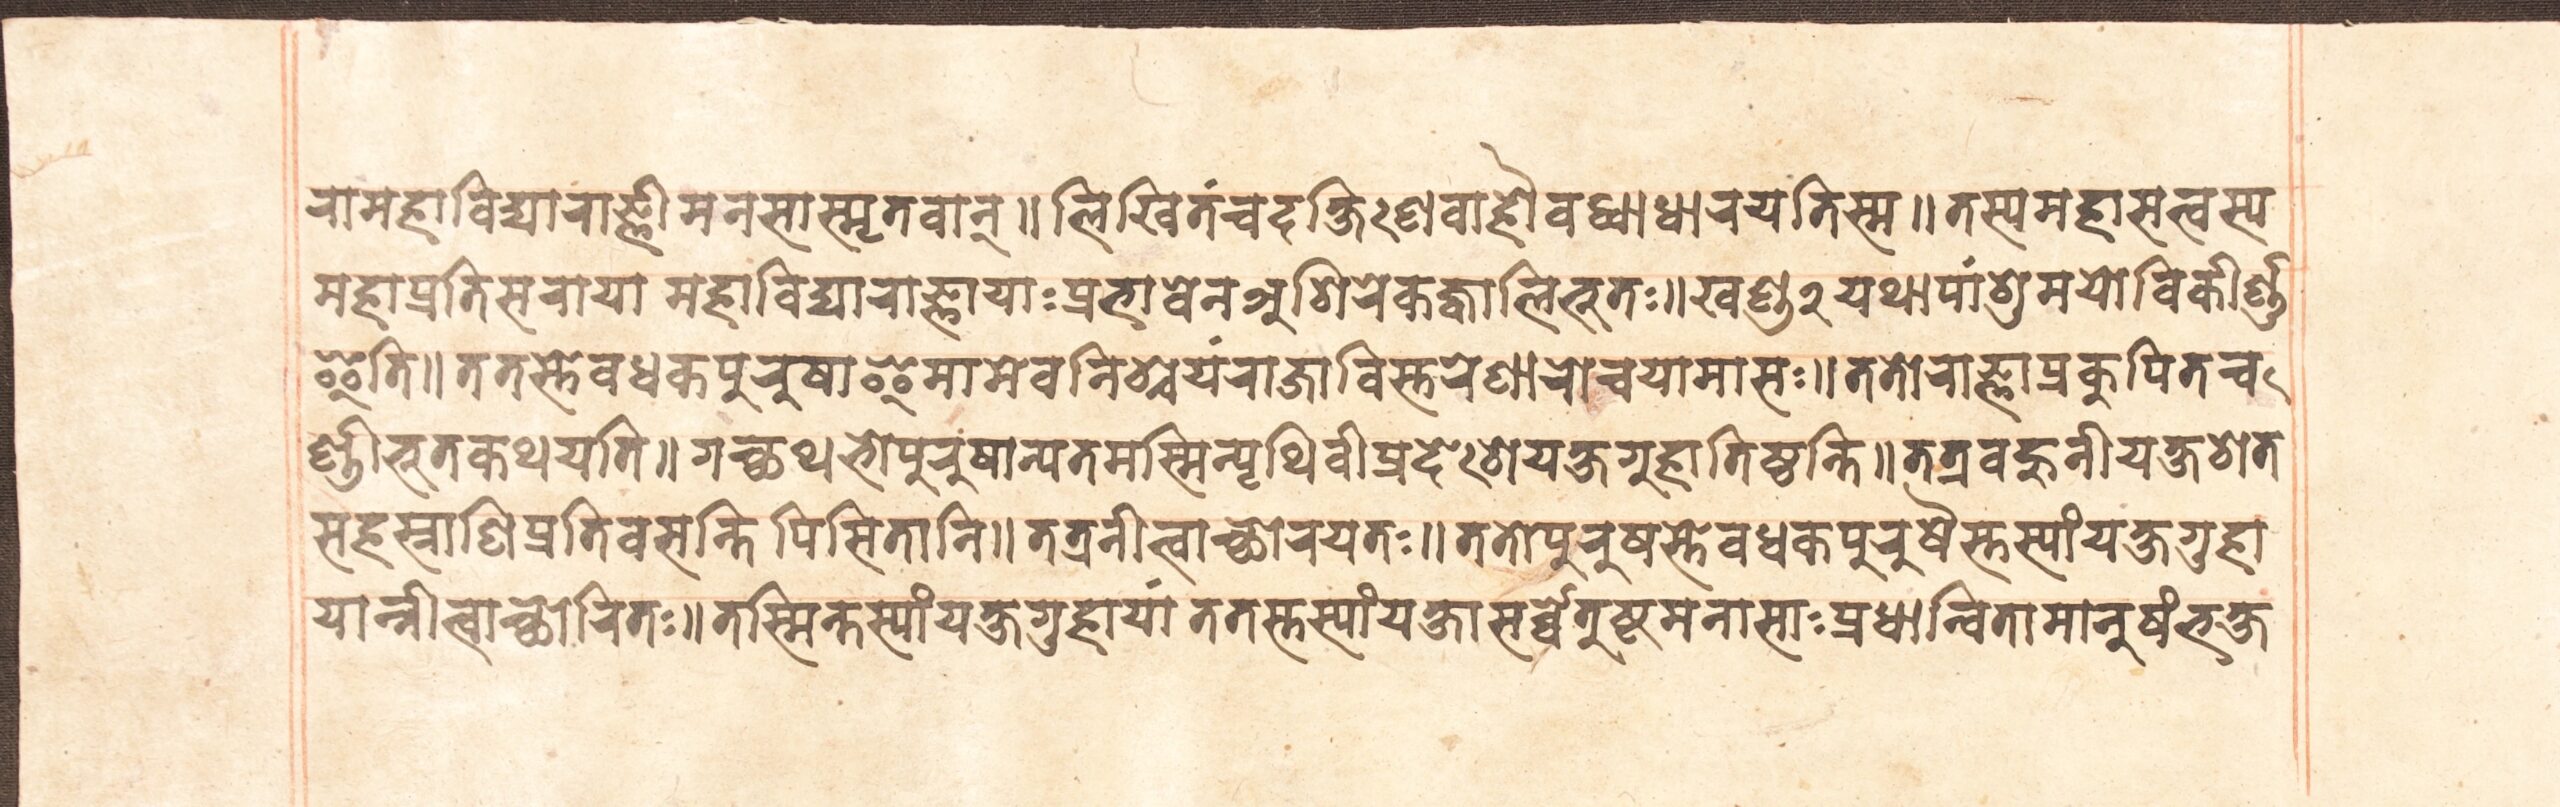 रामहाविद्याराज्ञीमनसास्मृतवान्॥लिखितंचदक्षिणेवाहौवद्ध्वाधारयतिस्म॥तस्यमहासत्वस्य
महाप्रतिसराया महाविद्याराज्ञायाःप्रभावेनअशिरेकज्वालिभूतः॥खण्ड२यथापांशुमयोविकीर्ण्ण
इति॥ततस्तेवधकपुरुषाइमामेवनिश्चयंराजाविस्तरेणारोचयामासः॥ततोराज्ञाप्रकुपितच
र्ण्डीभूतकथयति॥गच्छथभोपुरुषान्यतमस्मिन्पृथिवीप्रदेशेयक्षगुहातिष्ठन्ति॥तत्रवहुनीयक्षशत
सहस्राणिप्रतिवसन्ति पिसितानि॥तत्रनीत्वाच्छोरयतः॥ततोपुरुषस्तेवधकपुरुषैस्तस्यांयक्षगुहा
यान्नीत्वाच्छोरितः॥तस्मिन्तस्यांयक्षगुहायां ततस्तस्यांयक्षासर्व्वेतुष्टमनासाःप्रधान्वितामानुषंभक्ष